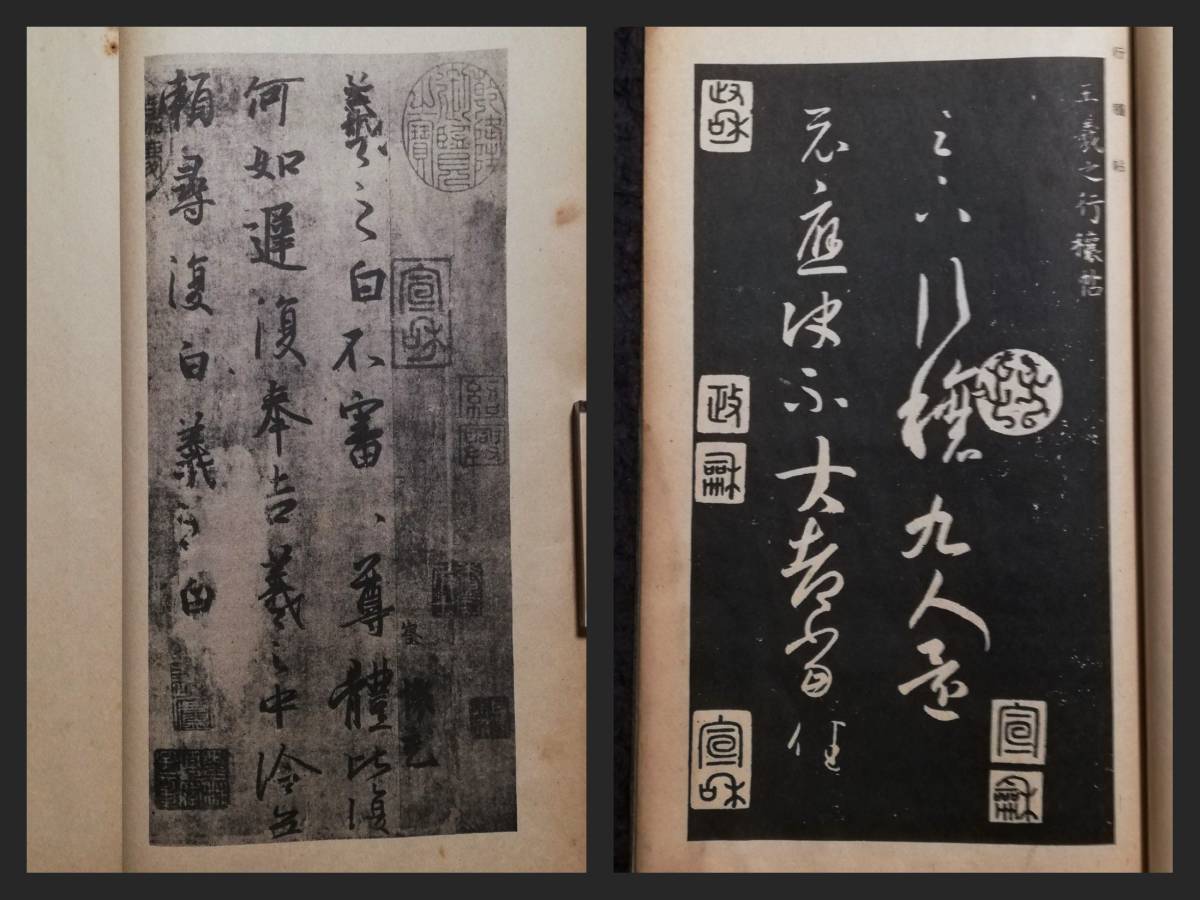 宣和
紹興
羲之白不審、尊體比復
何如遲復奉告羲之中冷無
賴尋復白羲之白
行穰帖
王羲之行穰帖
足下行穰九人還
示應決不大都當佳
宣和
政和
政和
宣和